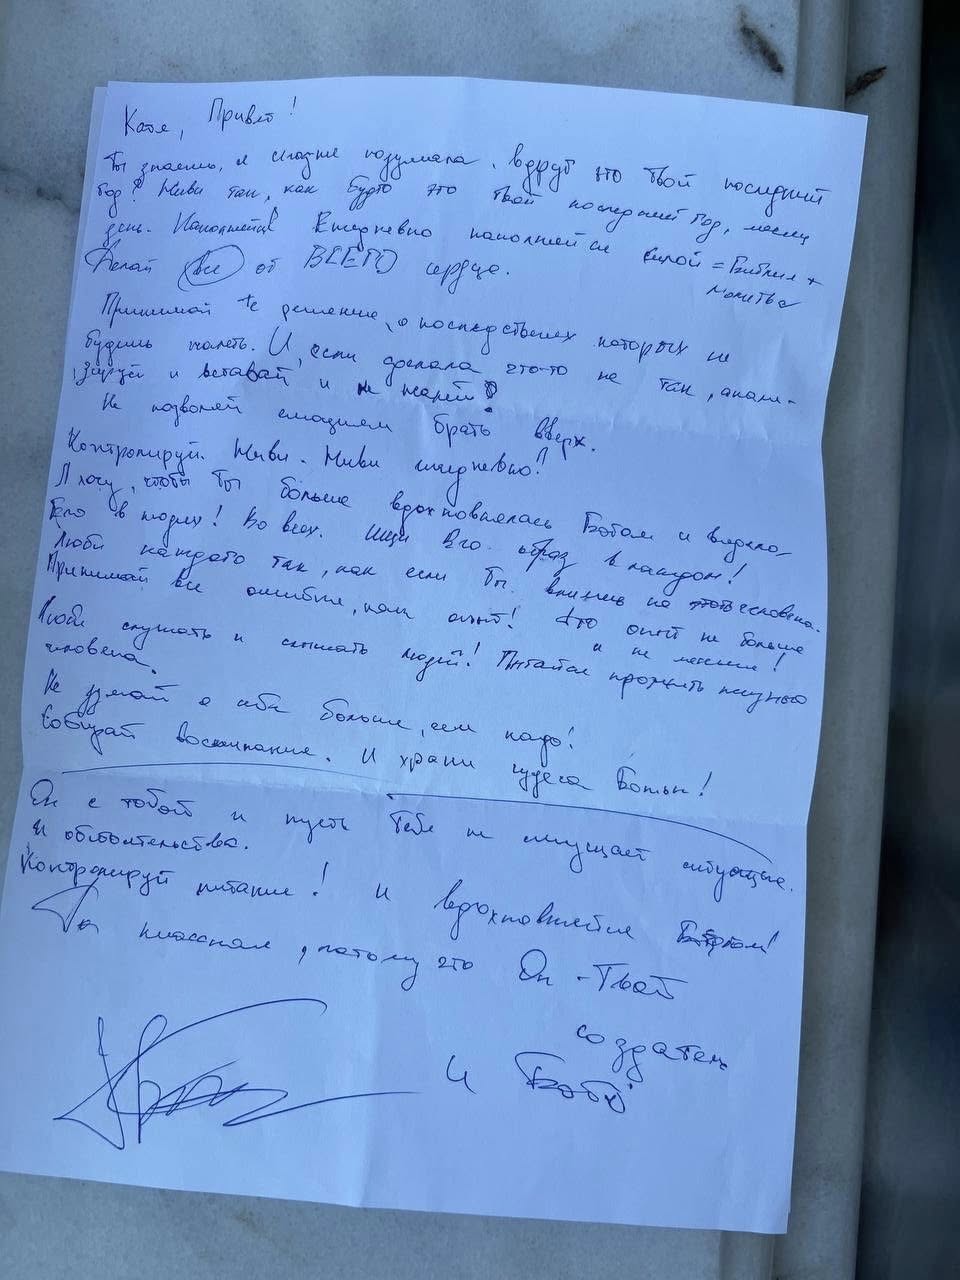 Катя, Привет!
Ты знаешь, я сегодня подумала, вдруг это твой последний
год? Живи так, как будто это твой последний год, месяц,
день. Наполняйся Ежедневно наполняйся силой = Библия +
молитва
Делай все от ВСЕГО сердца.
Принимай те решение, о последствиях которых не
будешь жалеть. И, если сделала что-то не так, анали-
зируй и вставай и не жалей!
Не позволяй эмоциям брать вверх.
Контролируй. Живи. Живи ежедневно!
Я хочу, чтобы Ты больше вдохновлялась Богом и видела
Его в людях! Во всех. Ищи Его образ в каждом!
Люби каждого так, как если Ты человека.
Принимай все ошибки, как опыт! Это опыт не больше
и не меньше!
Люби слушать и слышать людей! Пытайся прожить жизнью
человека.
Не думай о себе больше, чем надо!
Собирай воспоминание. И храни чудеса Божьи!
Он с тобой и пусть Тебя не смущает ситуация
и обстоятельства.
Контролируй питание! И вдохновляйся Богом!
Ты классная, потому что Он - Твой
создатель
и Бог!